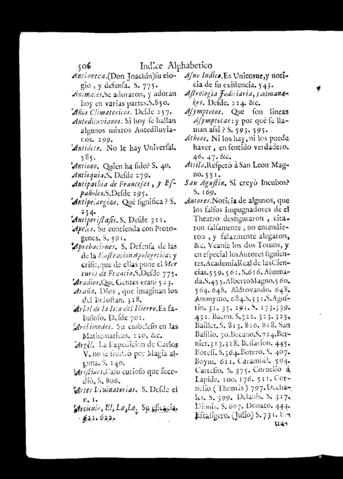 506 Indice Alphabetico
Anchoreta.(Don Joachin)ſu elo-
gio, y defenſa. S. 775.
Animales.Se adoraron, y adoran
hoy en varias partes.S.850.
Años Climatericos. Desde 257.
Antediluvianos. Si hoy ſe hallan
algunos mixtos Antediluvia-
nos. 299.
Antidoto. No le hay Univerſal.
585.
Antioco. Quien ha ſido? S. 40.
Antioquia.S. Desde 279.
Antipathia de Franceſes, y Eſ-
pañoles.S. Desde 295.
Antipelargia. Què ſignifica? S.
254.
Antiperiſtaſis.S. Desde 311.
Apeles. Su contienda con Proto-
genes. S. 591.
Aprobaciones. S. Defenſa de las
de la Iluſtracion Apologetica: y
criſis, que de ellas pone el Mer
curio de Francia.S.Desde 775.
Aradios.Què Gentes eran? 523.
Araña. Dios, que imaginan los
del Indoſtan. 318.
Arbol de la Isla del Hierro.Es fa-
buloſo. Desde 701.
Archimedes. Su embeleſo en las
Mathematicas, 220. &c.
Argèl. La Expedicion de Carlos
V. no ſe fruſtrò por Magia al-
guna. S. 140.
Ariſteas.Caſo curioſo que ſuce-
diò, S. 806.
Artes Divinatorias. S. Desde el
n. 1.
Articulo, El, La, Lo. Su eficacia.
621. 622.
Aſno Indico.Es Unicornue, y noti-
cia de su exiſtencia. 543.
Aſtrologia Judiciaria, y Almana-
kes. Desde. 224. &c.
Aſymptotos. Que ſon lineas
Aſymptotas: y por què ſe lla-
man aſsi? S. 593. 595.
Atheos. Ni los hay, ni los puede
haver, en ſentido verdadero.
46. 47. &c.
Attila.Reſpetò à San Leon Mag-
no. 551.
San Aguſtin. Si creyò Incubos?
S. 169.
Autores.Noticia de algunos, que
los falſos Impugnadores de el
Theatro desfiguraron, cita-
ron falſamente, no entendie-
ron, y falazmente alegaron,
&c. Veanſe los dos Tomos, y
en eſpecial los Autores ſiguien-
tes,Academia Real de las Cien-
cias.559. 561.S.616. Ahuma-
da.S.455.Alberto Magno,560.
564. 648. Aldrovando. 648.
Anonymo, 684.S.331.S.Aguſ-
tin. 31. 35. 291. S. 173. 539.
432. Bacon. S.322. 323. 325,
Baillet. S. 813. 816. 818. San
Baſilio, 70. Becano.S.724.Ber-
nier.313.318. Beſarion. 445.
Borelli. S.364. Botero. S. 407.
Boym. 611. Caramuel. 594.
Carteſio. S. 375. Cornelio à
Lapide. 100. 176. 511. Cor-
nelio (Thomas) 797. Decha-
les. S. 399. Delanis. S. 317.
Dionis. S. 607. Donato. 444.
Eſcaligero. (Julio) S. 731.